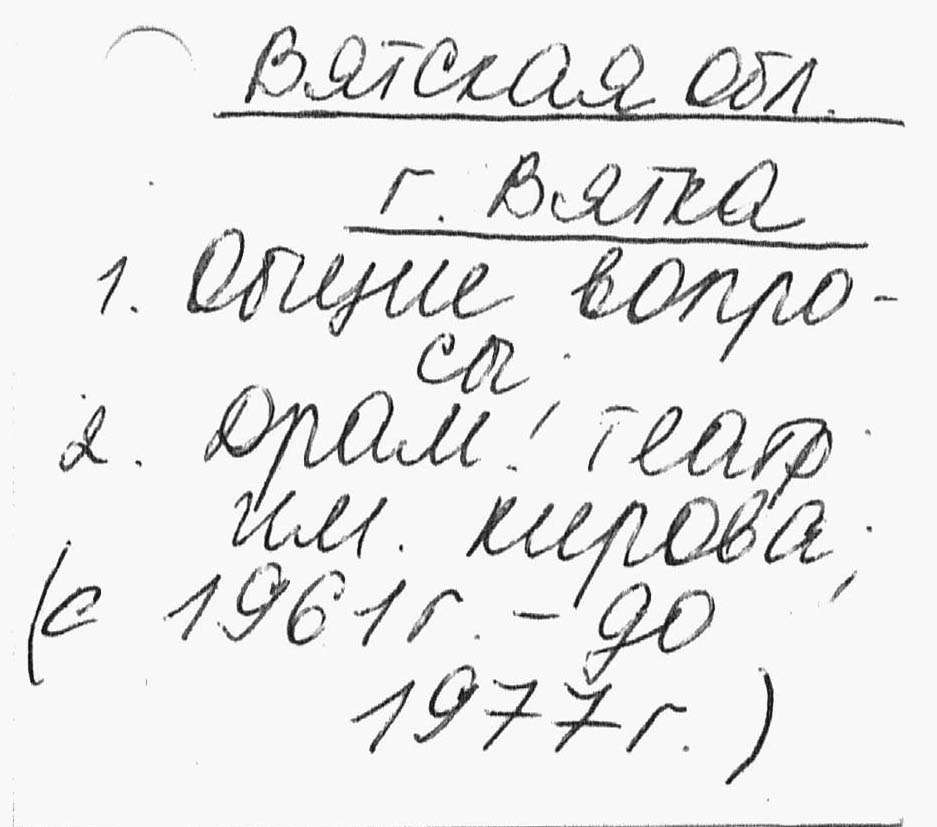 Вятская обл.
г. Вятка
1. Общие вопро-
сы;
2. Драм. театр
им. Кирова;
(с 1961г. - до
1977г.)